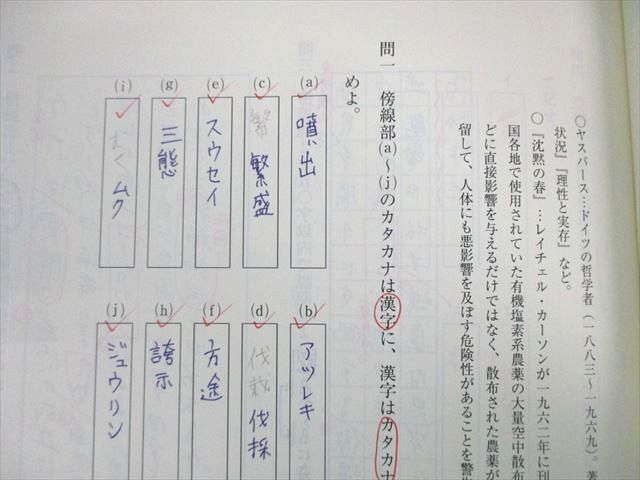 ○ヤスパース…ドイツの哲学者（一八八三～一九六九）。著
状況』『理性と実存』など。
○『沈黙の春』…レイチェル・カーソンが一九六二年に刊
国各地で使用されていた有機塩素系農薬の大量空中散布
どに直接影響を与えるだけではなく、散布された農薬が
留して、人体にも悪影響を及ぼす危険性があることを警告
問一 傍線部(a)～(j)のカタカナは漢字に、漢字はカタカナ
めよ。
(a) 噴い出
(b) アツレキ
(c) 繁 繁盛
(d) 伐栽 伐採
(e) スウセイ
(f) 方途
(g) 三態
(h) 誇示
(i) むく ムク
(j) ジュウリン